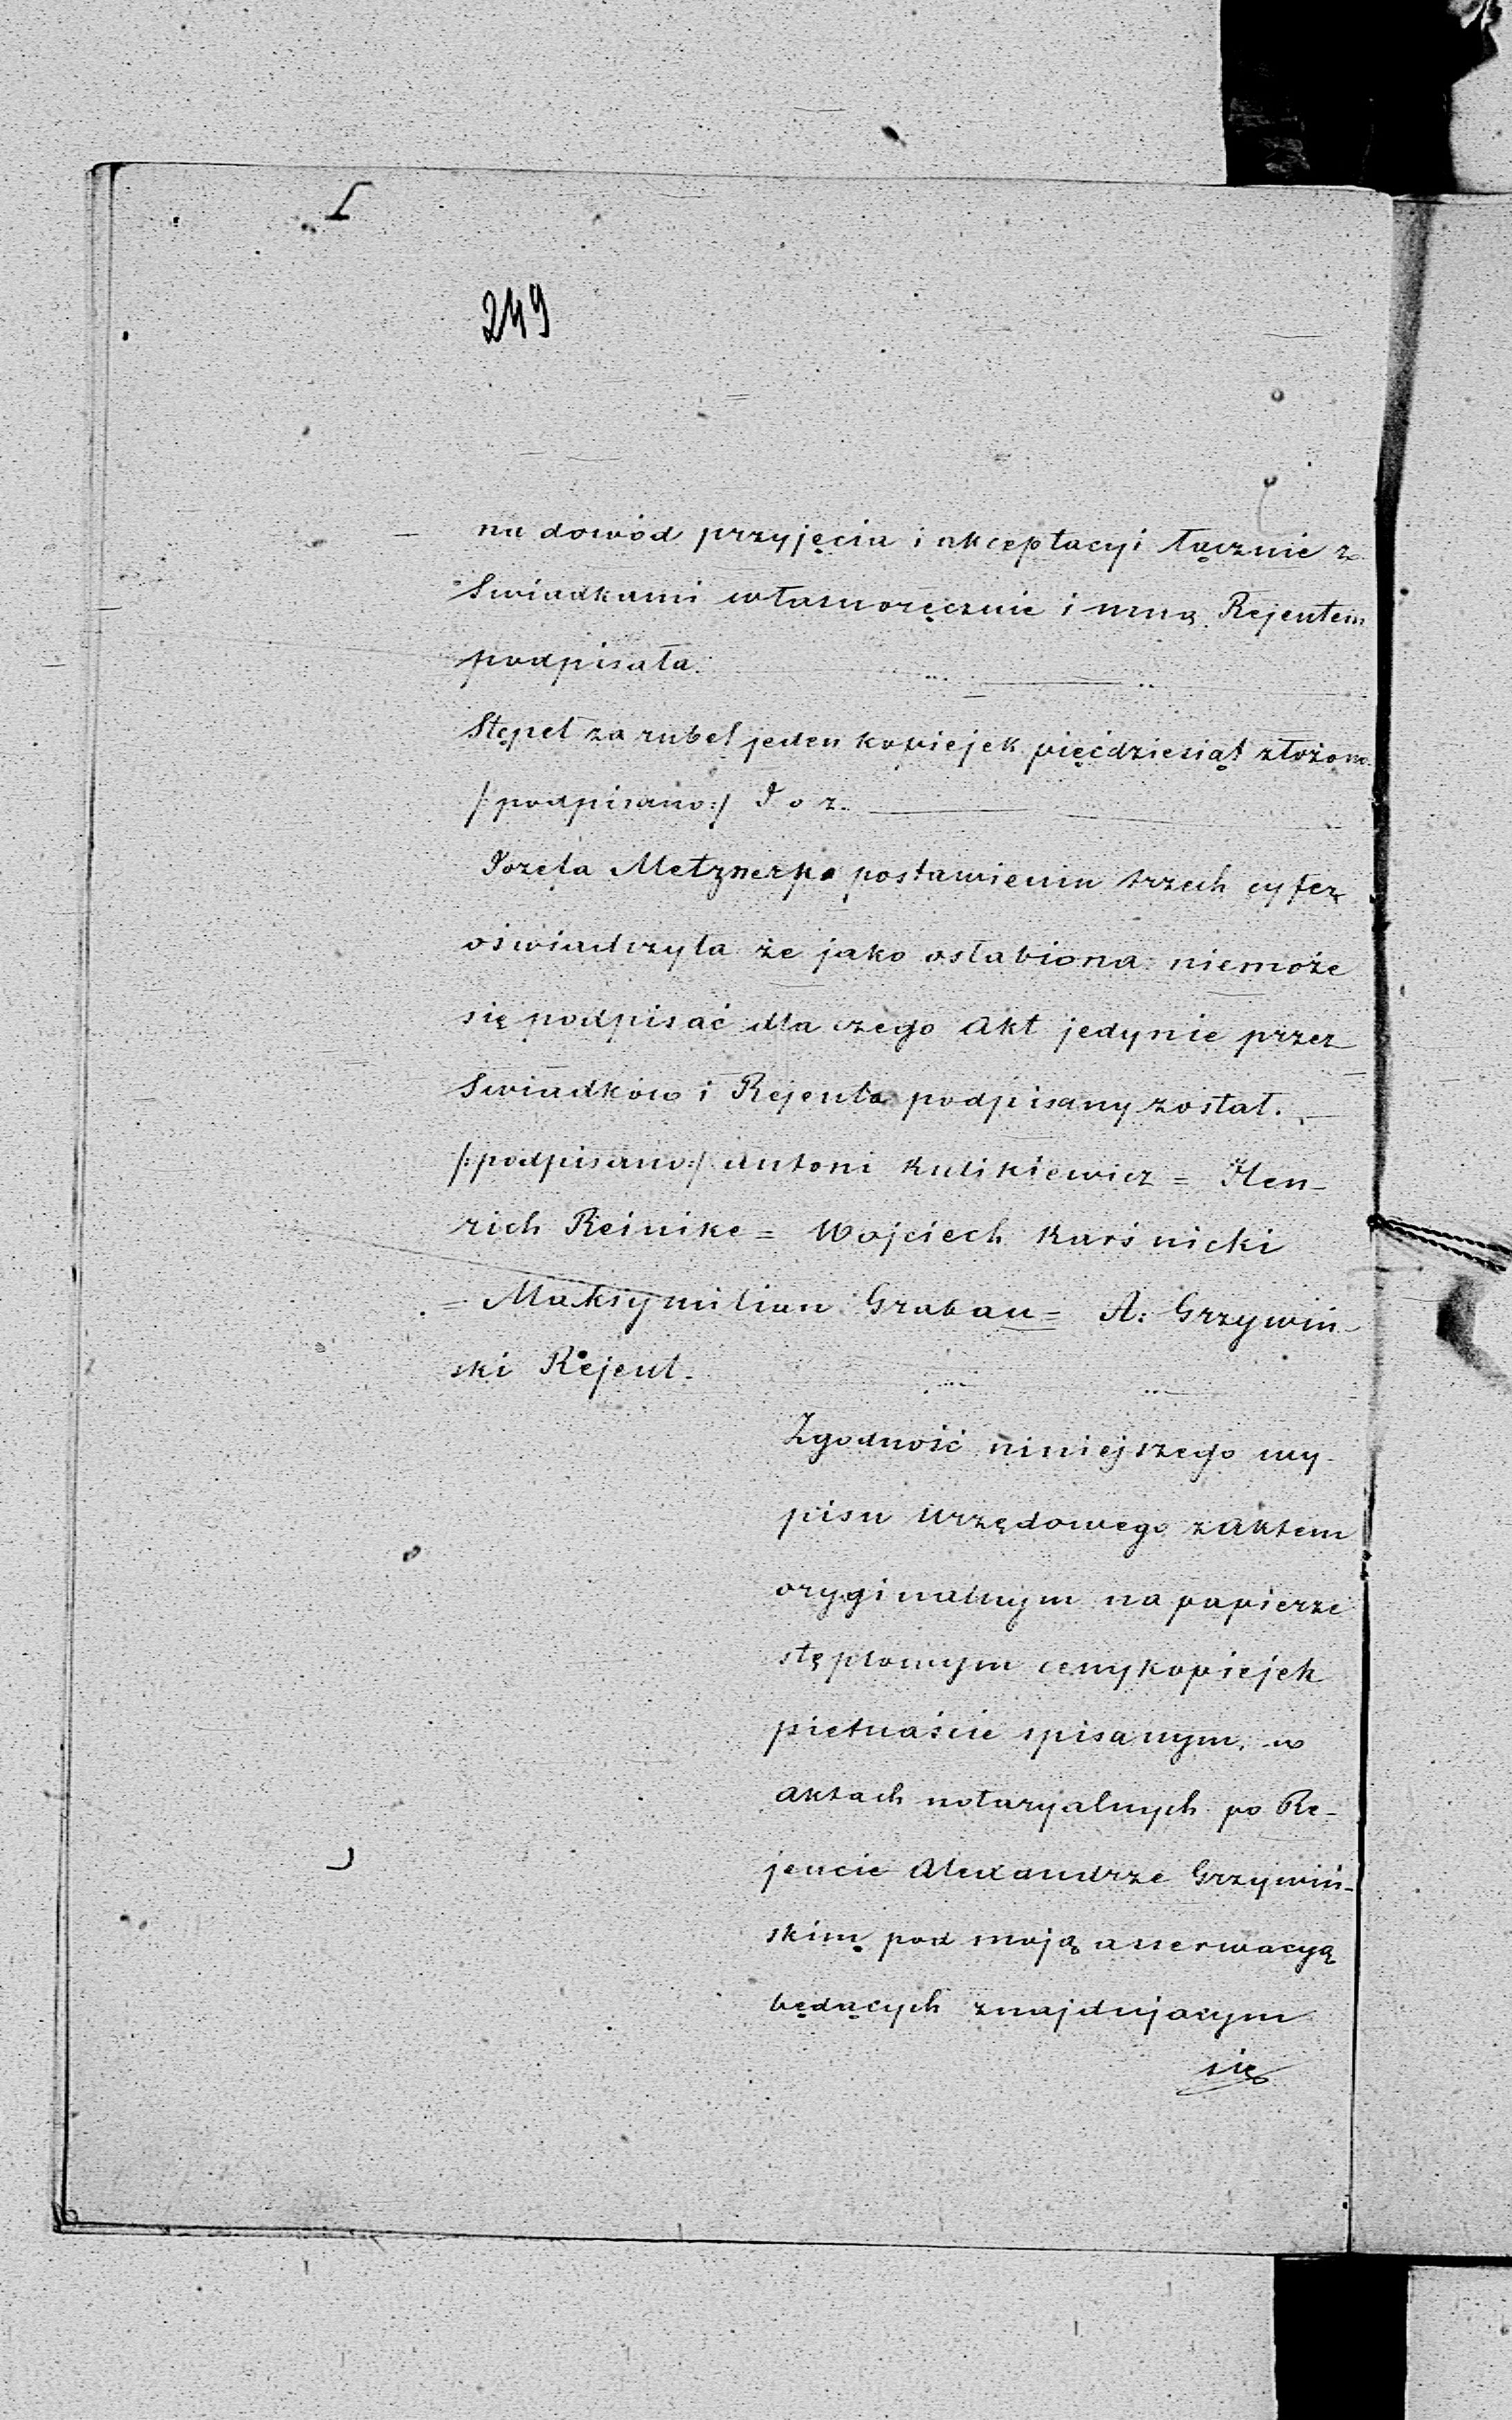 249
na dowód przyjęcia i akceptacyi łącznie z
Swiadkami własnoręcznie i mną Rejentem
podpisała.
Stępel za rubel jeden kopiejek pięćdziesiąt złożono.
/:podpisano:/ J o z.
Jozefa Metzner po postawieniu trzech cyfer
oświadczyła że jako osłabiona niemoże
się podpisać dla czego Akt jedynie przez
Swiadków i Rejenta podpisany został.
/:podpisano:/ Antoni Kulikiewicz = Hen-
rich Reinike = Wojciech Karśnicki
= Maksymilian Grabau = A: Grzywiń-
ski Rejent.
Zgodność niniejszego wy-
pisu Urzędowego z Aktem
oryginalnym na papierze
stęplowym ceny kopiejek
pietnaście spisanym, w
Aktach notaryalnych po Re-
jencie Alexandrze Grzywiń-
skim pod moją asserwacyą
będących znajdującym
się